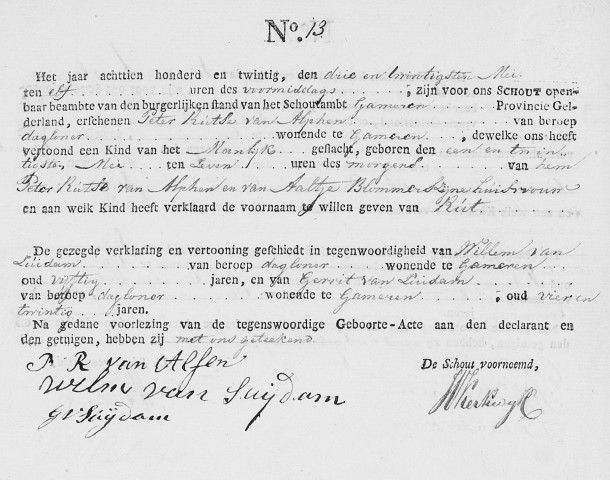 No. 13
Het jaar achttien honderd en twintig, den drie en twintigsten Mei
ten elf . . . . . . uren des voormiddags . . . . . , zijn voor ons SCHOUT open-
baar beambte van den burgerlijken stand van het Schoutambt Gameren . . . . . Provincie Gel-
derland, erschenen Peter Rutse van Alphen . . . . . van beroep
dagloner . . . . . wonende te Gameren . . . . , dewelke ons heeft
vertoond een Kind van het Manlyk . . geslacht, geboren den een en twin
tigsten Mei . . . ten Zeven . uren des morgens . . . . van hem
Peter Rutse van Alphen en van Aaltje Blommers zyne huisvrouw
en aan welk Kind heeft verklaard de voornaam te willen geven van Rut. . . . .
De gezegde verklaring en vertooning geschiedt in tegenwoordigheid van Willem van
Zuidam . . . . . van beroep dagloner . . . . . wonende te Gameren
oud vijftig . . . . . jaren, en van Gerrit van Zuidam . . . .
van beroep dagloner . . . . . wonende te Gameren . . . . , oud vier en
twintig . . jaren.
Na gedane voorlezing van de tegenswoordige Geboorte-Acte aan den declarant en
den getuigen, hebben zij met ons geteekend.
P R van Alfen
De Schout voornoemd,
Wilm van Suydam
G v Suÿdam